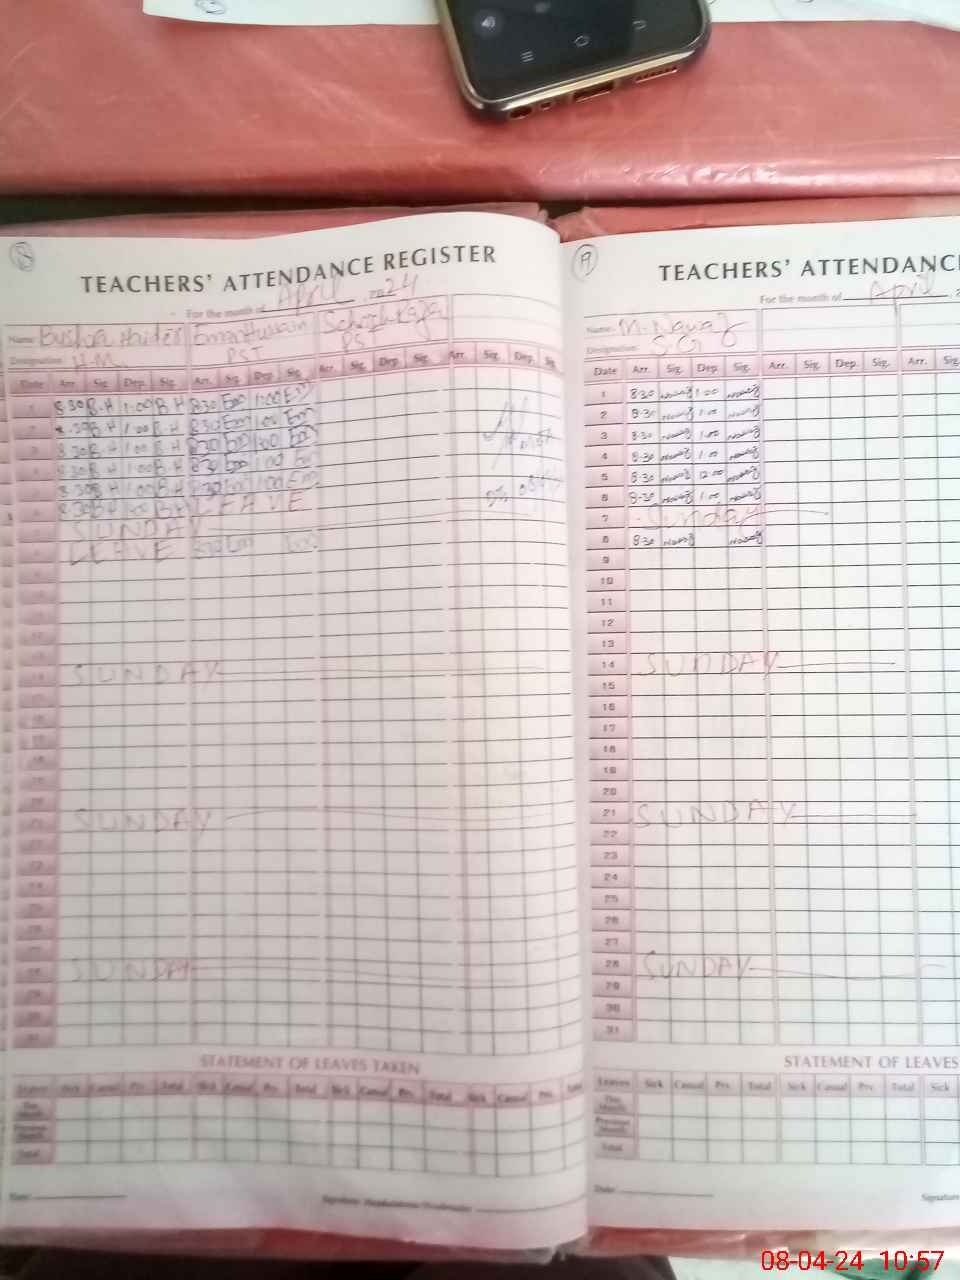 8
TEACHERS' ATTENDANCE REGISTER
For the month of April 2024
Name: Bushra Haider Eman Hussain
Designation: H.M. PST PS
Date Arr. Sig. Dep. Sig. Arr. Sig. Dep. Sig. Arr. Sig. Dep. Sig. Arr. Sig. Dep. Sig.
1 8.30 B.H 1:00 B.H 8:30 Em 1:00 Em
8.30 B.H 1:00 B.H 8:30 Em 1:00 Em
3 8.30 B.H 1:00 B.H 8:30 Em 1:00 Em
8.30 B.H 1:00 B.H 8:30 Em 1:00 Em
8.30 B.H 1:00 B.H 8:30 Em 1:00 Em
8.30 B.H 1:00 B.H LEAVE
SUNDAY
LEAVE 8:30 Em Em
SUNDAY
SUNDAY
SUNDAY
STATEMENT OF LEAVES TAKEN
Leaves Sick Casual Prv. Total Sick Casual Prv. Total Sick Casual Prv. Total Sick Casual Prv. Total
This Month
Previous Month
Total
Date:
9
TEACHERS' ATTENDANC
For the month of April
Name: M. Nawaz
Designation: S.G
Date Arr. Sig. Dep. Sig. Arr. Sig. Dep. Sig. Arr.
1 8:30 Nawaz 1:00 Nawaz
2 8:30 Nawaz 1:00 Nawaz
3 8:30 Nawaz 1:00 Nawaz
4 8:30 Nawaz 1:00 Nawaz
5 8:30 Nawaz 12:00 Nawaz
6 8:30 Nawaz 1:00 Nawaz
7 Sunday
8 8:30 Nawaz Nawaz
9
10
11
12
13
14 SUNDAY
15
16
17
18
19
20
21 SUNDAY
22
23
24
25
26
27
28 SUNDAY
29
30
31
STATEMENT OF LEAVES
Leaves Sick Casual Prv. Total Sick Casual Prv. Total Sick
This Month
Previous Month
Total
Date:
Signature
08-04-24 10:57